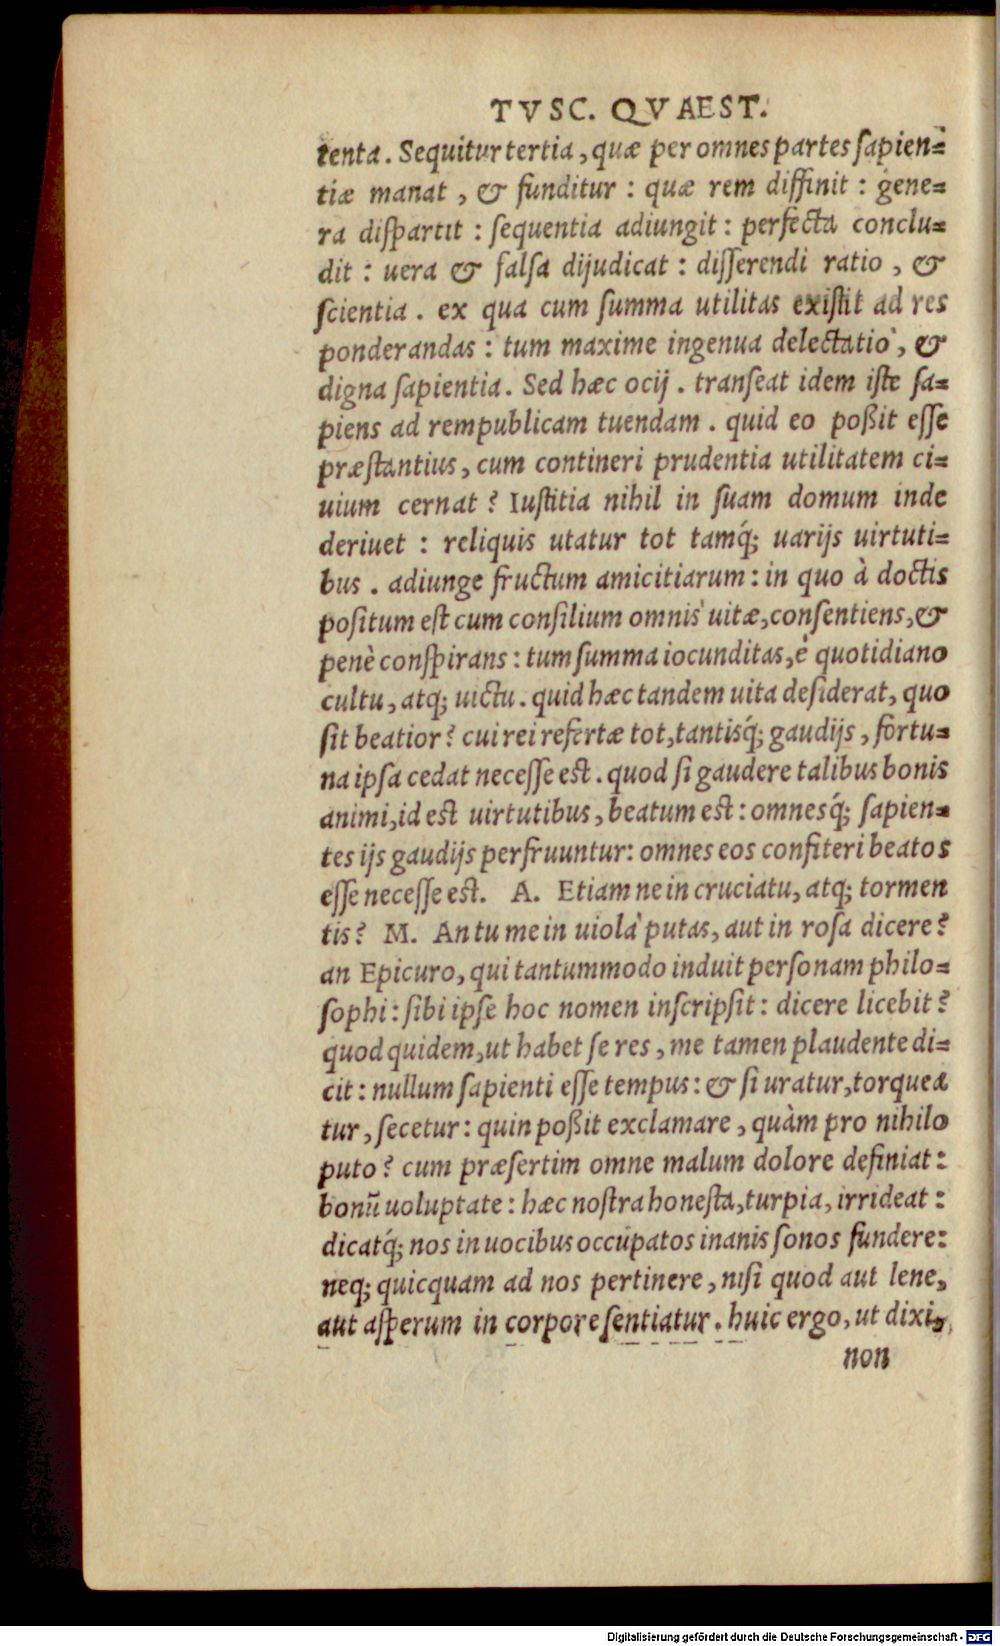 TVSC. QVAEST.
tenta. Sequitur tertia, quæ per omnes partes ſapien=
tiæ manat, & funditur: quæ rem diffinit: gene=
ra diſpartit: ſequentia adiungit: perfecta conclu=
dit: uera & falſa dijudicat: diſſerendi ratio, &
ſcientia. ex qua cum ſumma utilitas exiſtit ad res
ponderandas: tum maxime ingenua delectatio, &
digna ſapientia. Sed hæc ocij. tranſeat idem iſte ſa=
piens ad rempublicam tuendam. quid eo poßit eſſe
præſtantius, cum contineri prudentia utilitatem ci=
uium cernat? Iuſtitia nihil in ſuam domum inde
deriuet: reliquis utatur tot tamq́; uarijs uirtuti=
bus. adiunge fructum amicitiarum: in quo à doctis
poſitum eſt cum conſilium omnis uitæ, conſentiens, &
penè conſpirans: tum ſumma iocunditas, è quotidiano
cultu, atq; uictu. quid hæc tandem uita deſiderat, quo
ſit beatior? cui rei refertæ tot, tantisq́; gaudijs, fortu=
na ipſa cedat neceſſe eſt. quod ſi gaudere talibus bonis
animi, id eſt uirtutibus, beatum eſt: omnesq́; ſapien=
tes ijs gaudijs perfruuntur: omnes eos confiteri beatos
eſſe neceſſe eſt. A. Etiam ne in cruciatu, atq; tormen
tis? M. An tu me in uiola putas, aut in roſa dicere?
an Epicuro, qui tantummodo induit perſonam philo=
ſophi: ſibi ipſe hoc nomen inſcripſit: dicere licebit?
quod quidem, ut habet ſe res, me tamen plaudente di=
cit: nullum ſapienti eſſe tempus: & ſi uratur, torquea
tur, ſecetur: quin poßit exclamare, quàm pro nihilo
puto? cum præſertim omne malum dolore definiat:
bonũ uoluptate: hæc noſtra honeſta, turpia, irrideat:
dicatq́; nos in uocibus occupatos inanis ſonos fundere:
neq; quicquam ad nos pertinere, niſi quod aut lene,
aut aſperum in corpore ſentiatur. huic ergo, ut dixi,
non
Digitalisierung gefördert durch die Deutsche Forschungsgemeinschaft - DFG